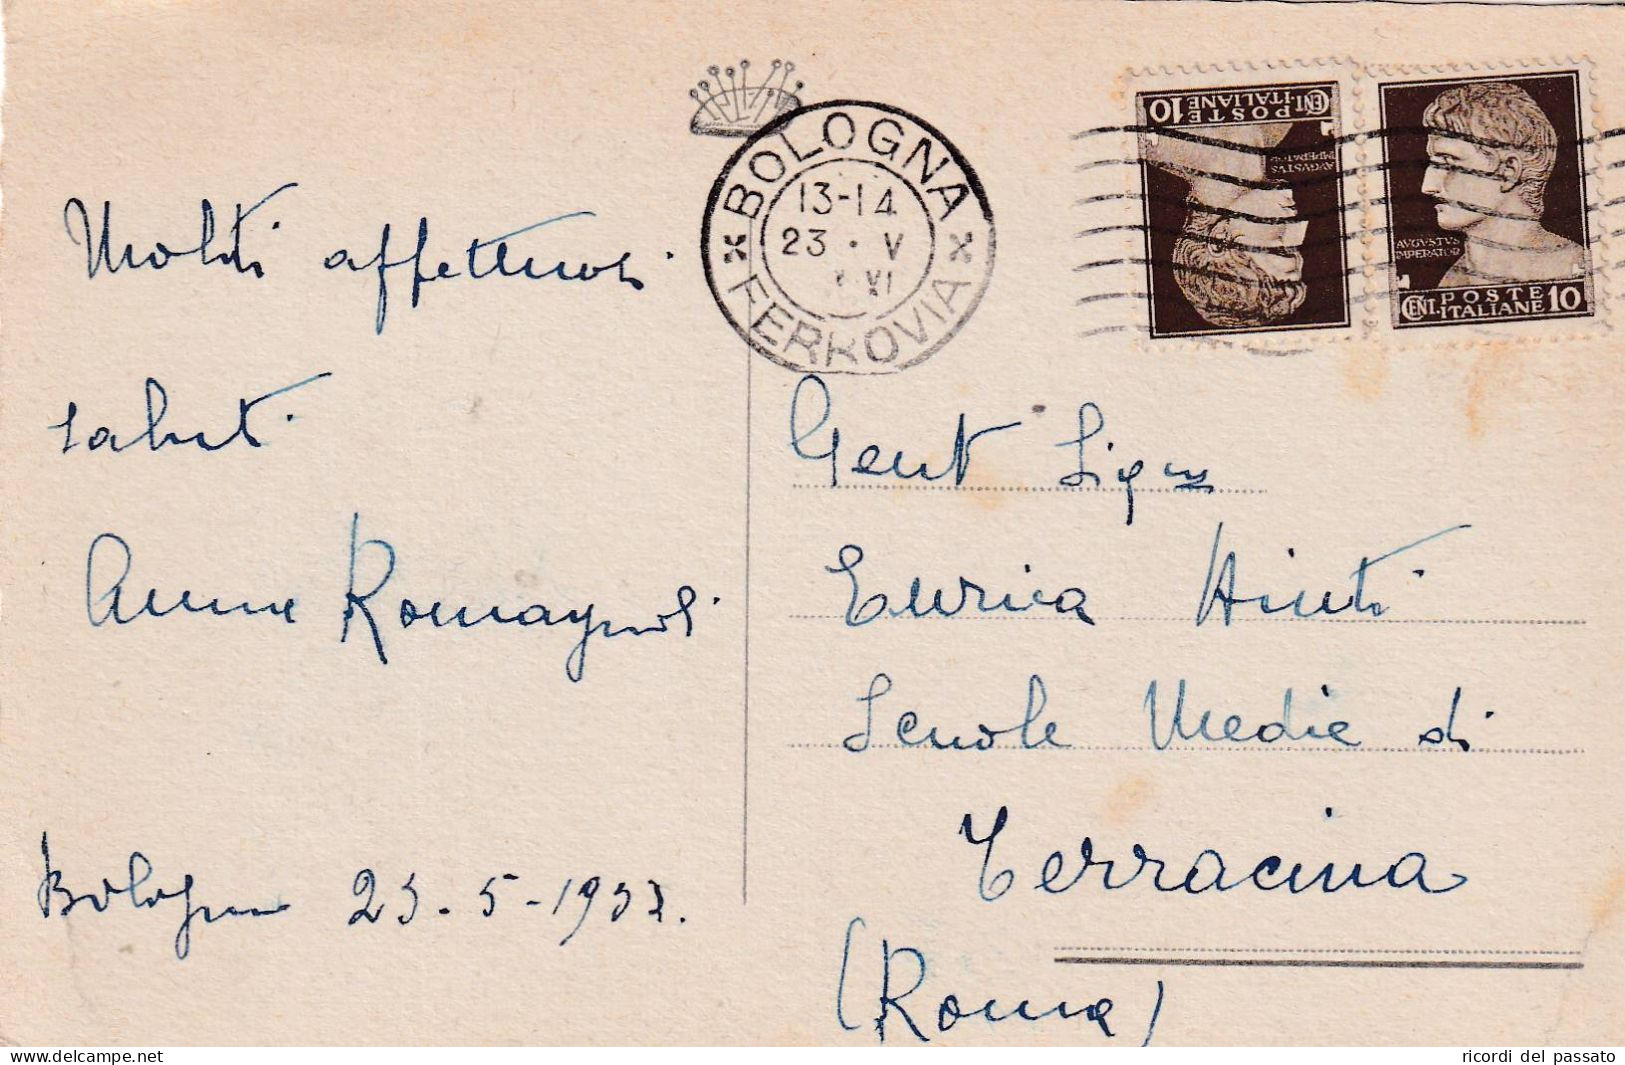 Molti affettuosi
saluti
Romagnoli
Bologna 23-5-1933.
BOLOGNA
13-14
23 · V
XI
FERROVIA
CENT. POSTE ITALIANE 10
AVGVSTVS
IMPERATOR
AVGVSTVS
IMPERATOR
CENT. POSTE ITALIANE 10
Gent
Enrica
Scuole Medie di
Terracina
(Roma)
delcampe.net
ricordi del passato